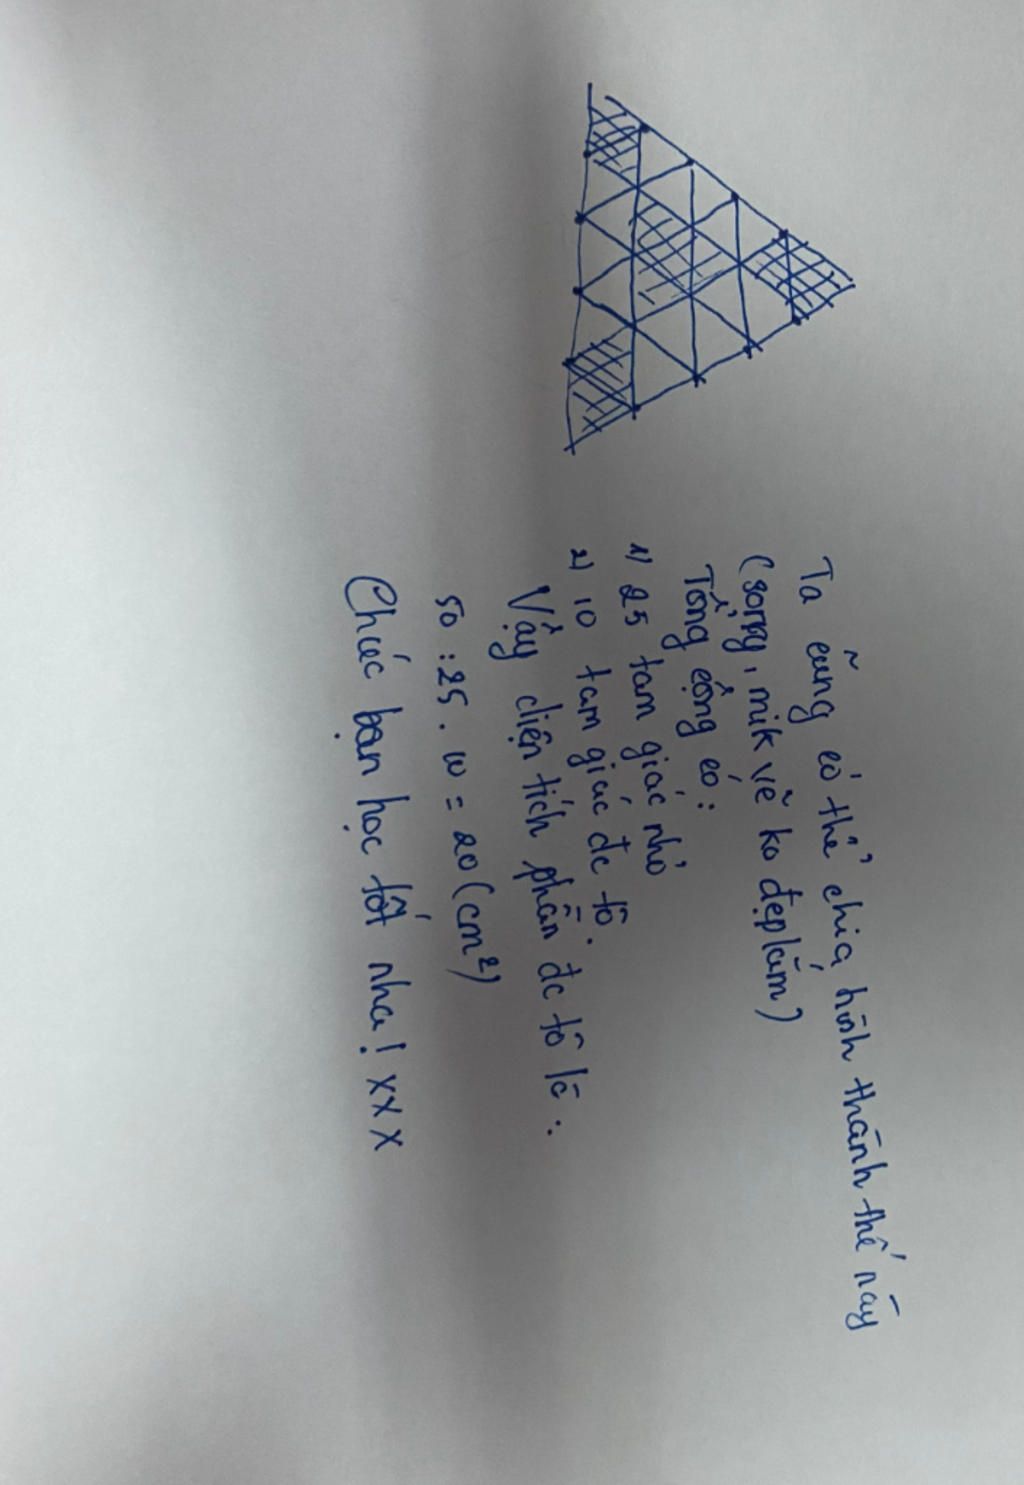 Ta cũng có thể chia hình thành thế này
(sorry, mik vẽ ko đẹp lắm)
Tổng cộng có:
1) 25 tam giác nhỏ
2) 10 tam giác đc tô.
Vậy diện tích phần đc tô là:
50 : 25 . 10 = 20 (cm²)
Chúc bạn học tốt nha! xxx